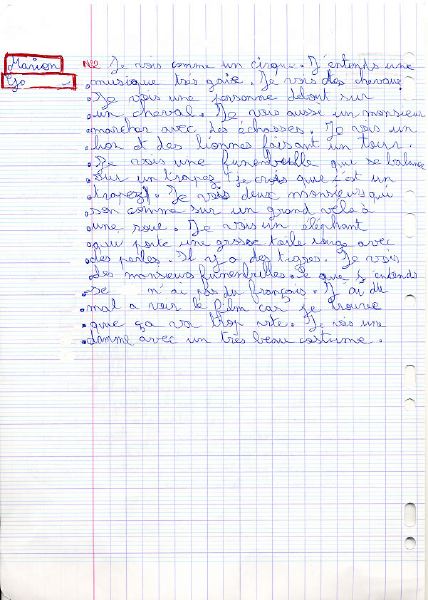 Marion
Go
N2 Je vois comme un cirque. J'entends une
musique très gaie. Je vois des chevaux
Je vois une personne debout sur
un cheval. Je vois aussi un monsieur
marcher avec des echasses. Je vois un
lion et des lionnes faisant un tour.
Je vois une funenbulle qui se balance
sur un trapeze je crois que s'est un
trapeze. Je vois deux monsieurs qui
son comme sur un grand vélo à
une roue. Je vois un éléphant
qui porte une grosse toile rouge avec
des perles. Il y a des tigres. Je vois
des monsieurs funenbulles. Ce que j'entends
se n'ai pas du français. J'ai du
mal a voir le film car je trouve
que ça va trop vite. Je vois une
damme avec un très beau costume.